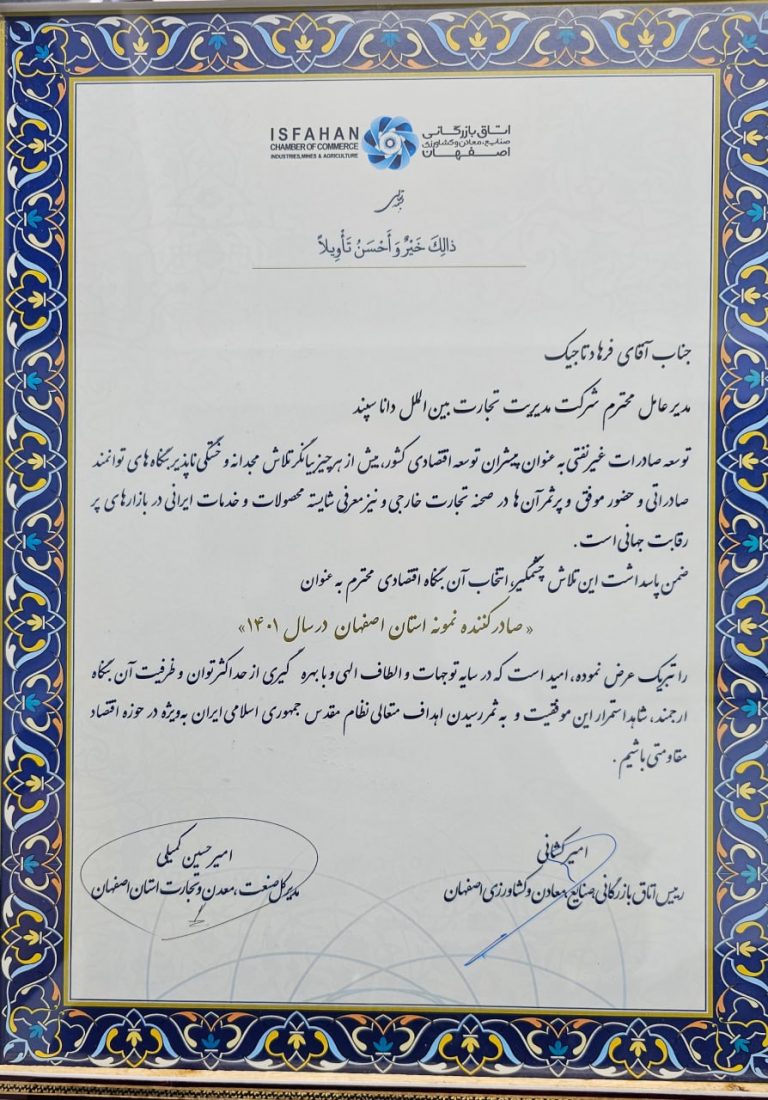 ISFAHAN
CHAMBER OF COMMERCE
INDUSTRIES, MINES & AGRICULTURE
اتاق بازرگانی
صنایع، معادن و کشاورزی
اصفهان
ذالِكَ خَيْرٌ وَ أَحْسَنُ تَأْوِيلاً
جناب آقای فرهاد تاجیک
مدیر عامل محترم شرکت مدیریت تجارت بین الملل دانا سپند
توسعه صادرات غیرنفتی به عنوان پیشران توسعه اقتصادی کشور، بیش از هر چیز بیانگر تلاش مجدانه و خستگی ناپذیر بنگاه های توانمند
صادراتی و حضور موفق و پرثمر آن ها در صحنه تجارت خارجی و نیز معرفی شایسته محصولات و خدمات ایرانی در بازارهای پر
رقابت جهانی است.
ضمن پاسداشت این تلاش چشمگیر، انتخاب آن بنگاه اقتصادی محترم به عنوان
«صادر کننده نمونه استان اصفهان در سال ۱۴۰۱»
را تبریک عرض نموده، امید است که در سایه توجهات و الطاف الهی و با بهره گیری از حداکثر توان و ظرفیت آن بنگاه
ارجمند، شاهد استمرار این موفقیت و به ثمر رسیدن اهداف متعالی نظام مقدس جمهوری اسلامی ایران به ویژه در حوزه اقتصاد
مقاومتی باشیم.
امیر کشانی
رییس اتاق بازرگانی صنایع، معادن و کشاورزی اصفهان
امیرحسین کمیلی
مدیر کل صنعت، معدن و تجارت استان اصفهان